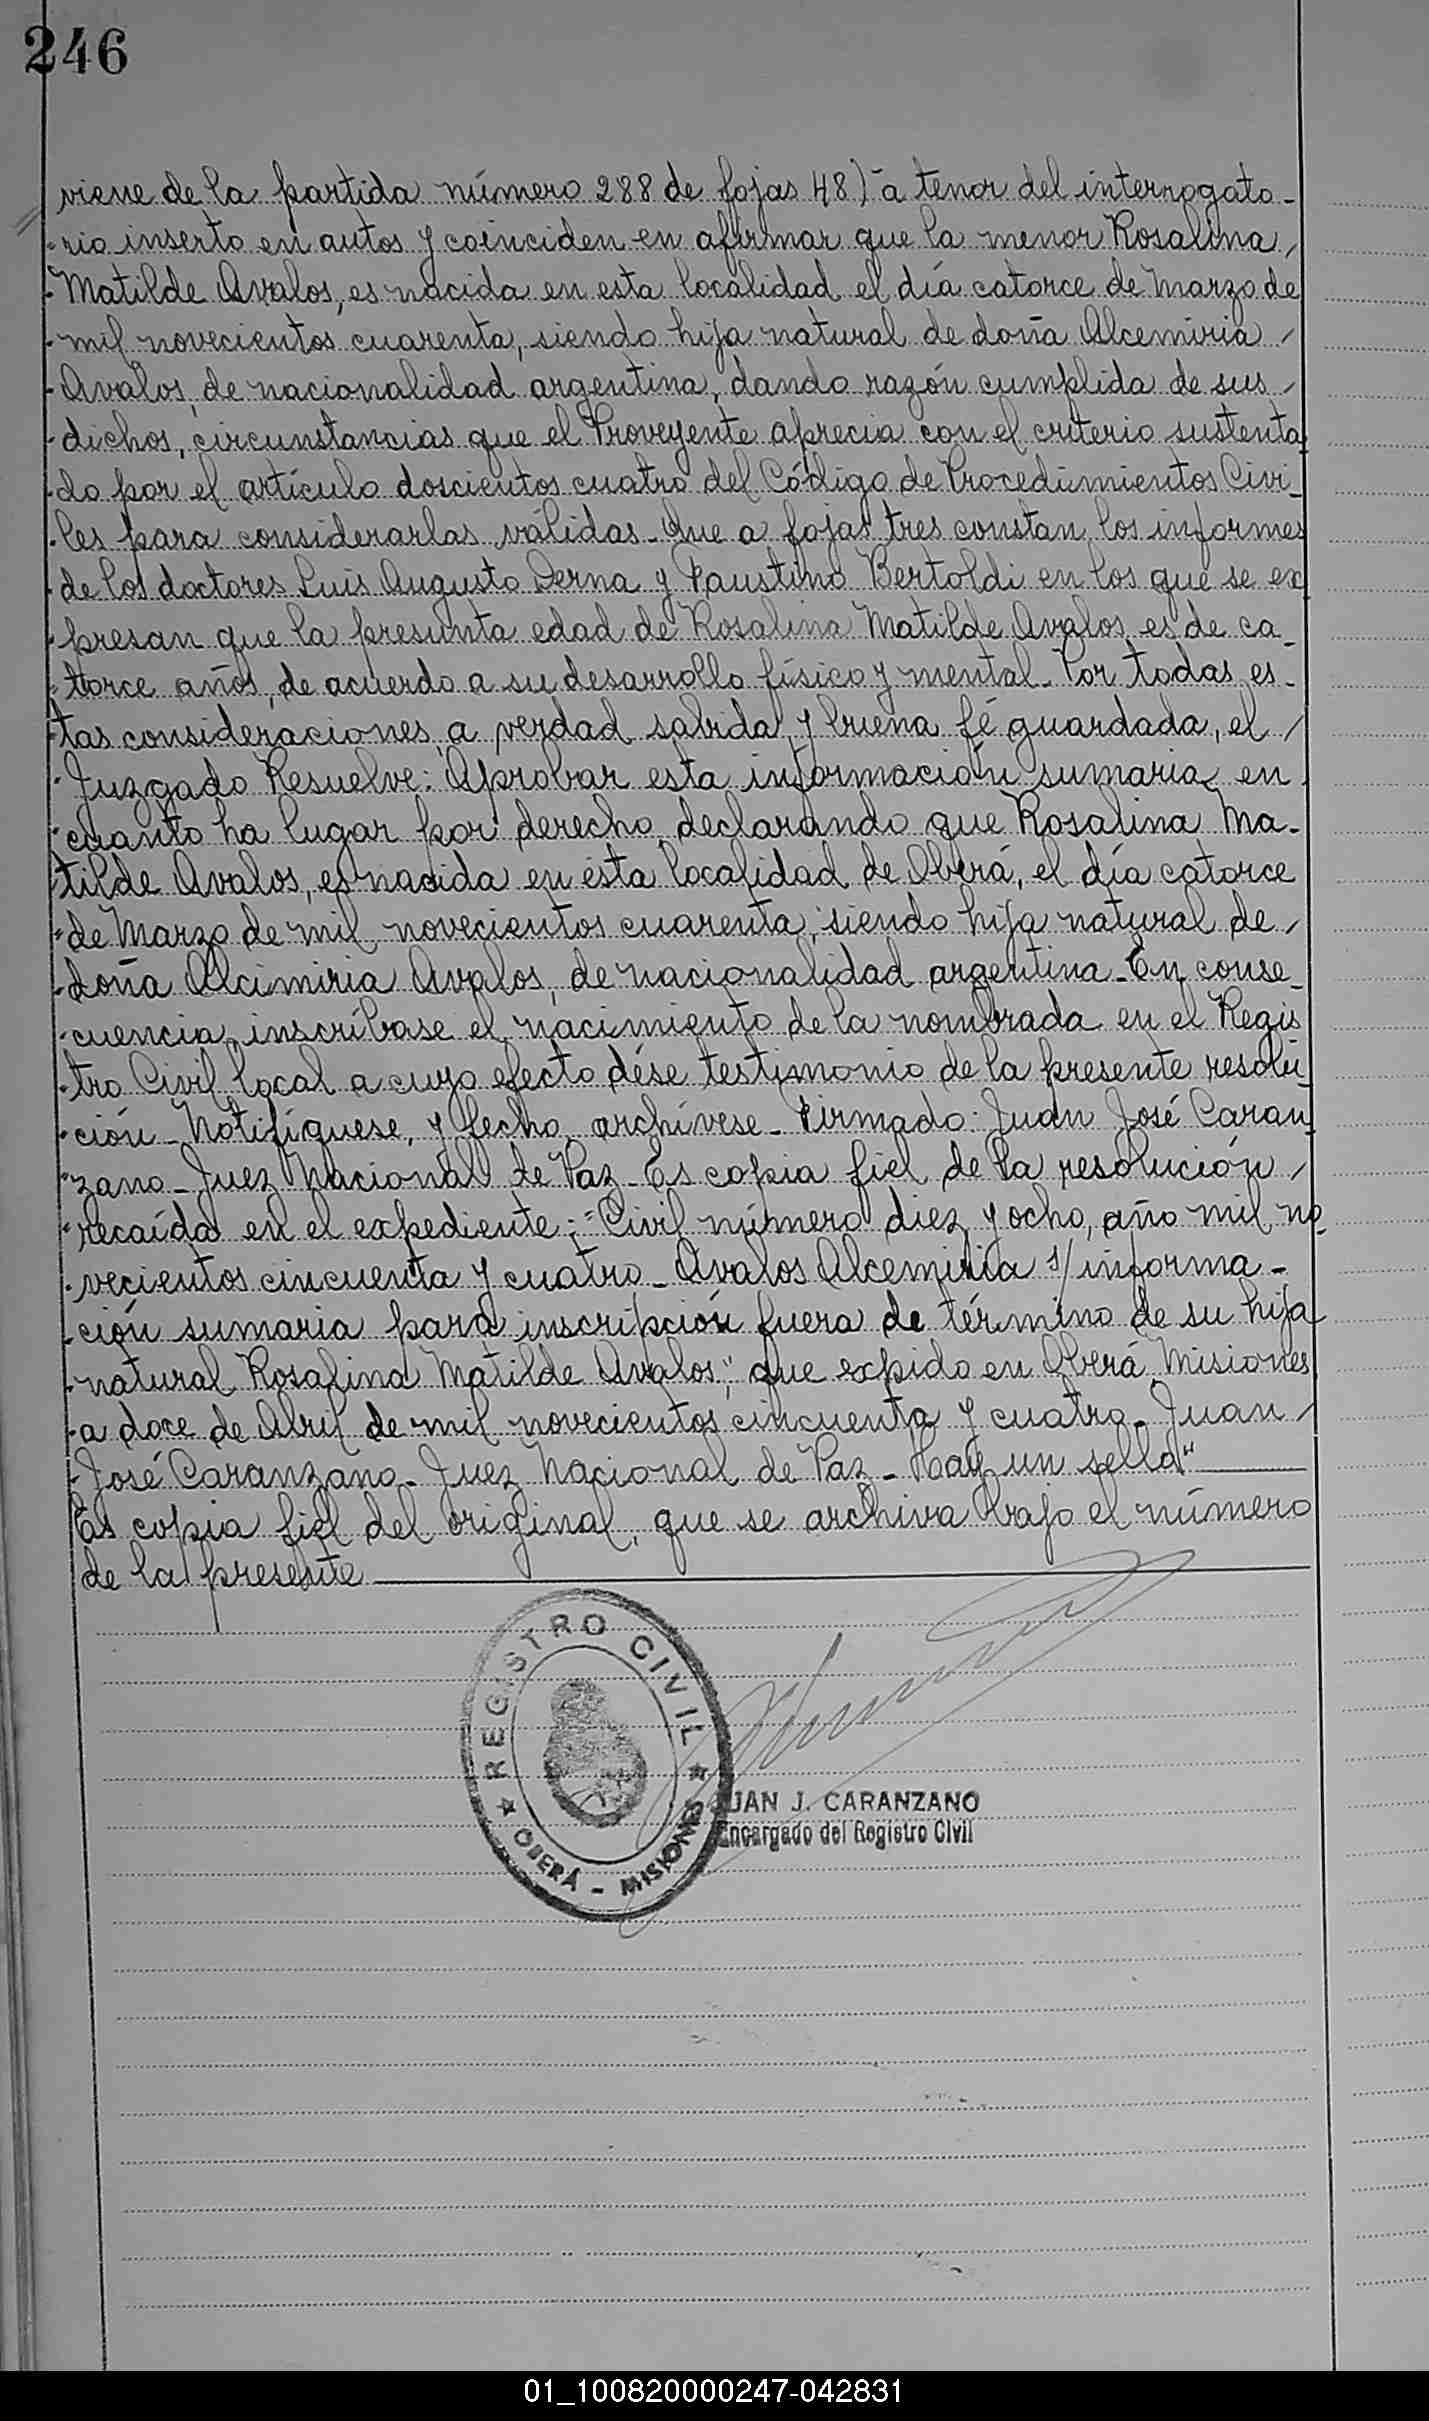 246
viene de la partida número 288 de fojas 48)-a tenor del interrogato-
rio inserto en autos y coinciden en afirmar que la menor Rosalina /
Matilde Avalos, es nacida en esta localidad el día catorce de Marzo de
mil novecientos cuarenta, siendo hija natural de doña Alcemiria /
Avalos, de nacionalidad argentina, dando razón cumplida de sus /
dichos, circunstancias que el Proveyente aprecia con el criterio sustenta
do por el artículo doscientos cuatro del Código de Procedimientos Civi-
les para considerarlas válidas- Que a fojas tres constan los informes
de los doctores Luis Augusto Derna y Faustino Bertoldi en los que se ex
presan que la presunta edad de Rosalina Matilde Avalos, es de ca-
torce años, de acuerdo a su desarrollo físico y mental- Por todas es-
tas consideraciones, a verdad sabida y buena fé guardada, el /
Juzgado Resuelve: Aprobar esta información sumaria en
cuanto ha lugar por derecho, declarando que Rosalina Ma-
tilde Avalos, es nacida en ésta localidad de Oberá, el día catorce
de Marzo de mil novecientos cuarenta, siendo hija natural de /
doña Alcimiria Avalos, de nacionalidad argentina- En conse-
cuencia, inscríbase el nacimiento de la nombrada en el Regis
tro Civil local a cuyo efecto dése testimonio de la presente resolu-
ción- Notifíquese, y fecho, archívese- Firmado: Juan José Caran-
zano- Juez Nacional de Paz- Es copia fiel de la resolución /
recaída en el expediente: "Civil número diez y ocho, año mil no
vecientos cincuenta y cuatro- Avalos Alcemiria s/informa-
ción sumaria para inscripción fuera de término de su hija
natural Rosalina Matilde Avalos", que expido en Oberá, Misiones
a doce de Abril de mil novecientos cincuenta y cuatro- Juan /
José Caranzano- Juez Nacional de Paz- Hay un sello"
Es copia fiel del original, que se archiva bajo el número
de la presente
REGISTRO CIVIL
OBERÁ - MISIONES
JUAN J. CARANZANO
Encargado del Registro Civil
01_100820000247-042831